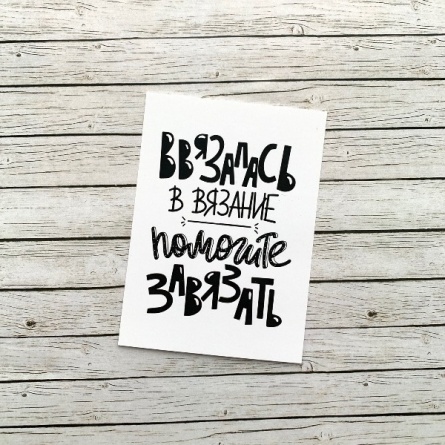 ВВЯЗАЛАСЬ
В ВЯЗАНИЕ
помогите
ЗАВЯЗАТЬ